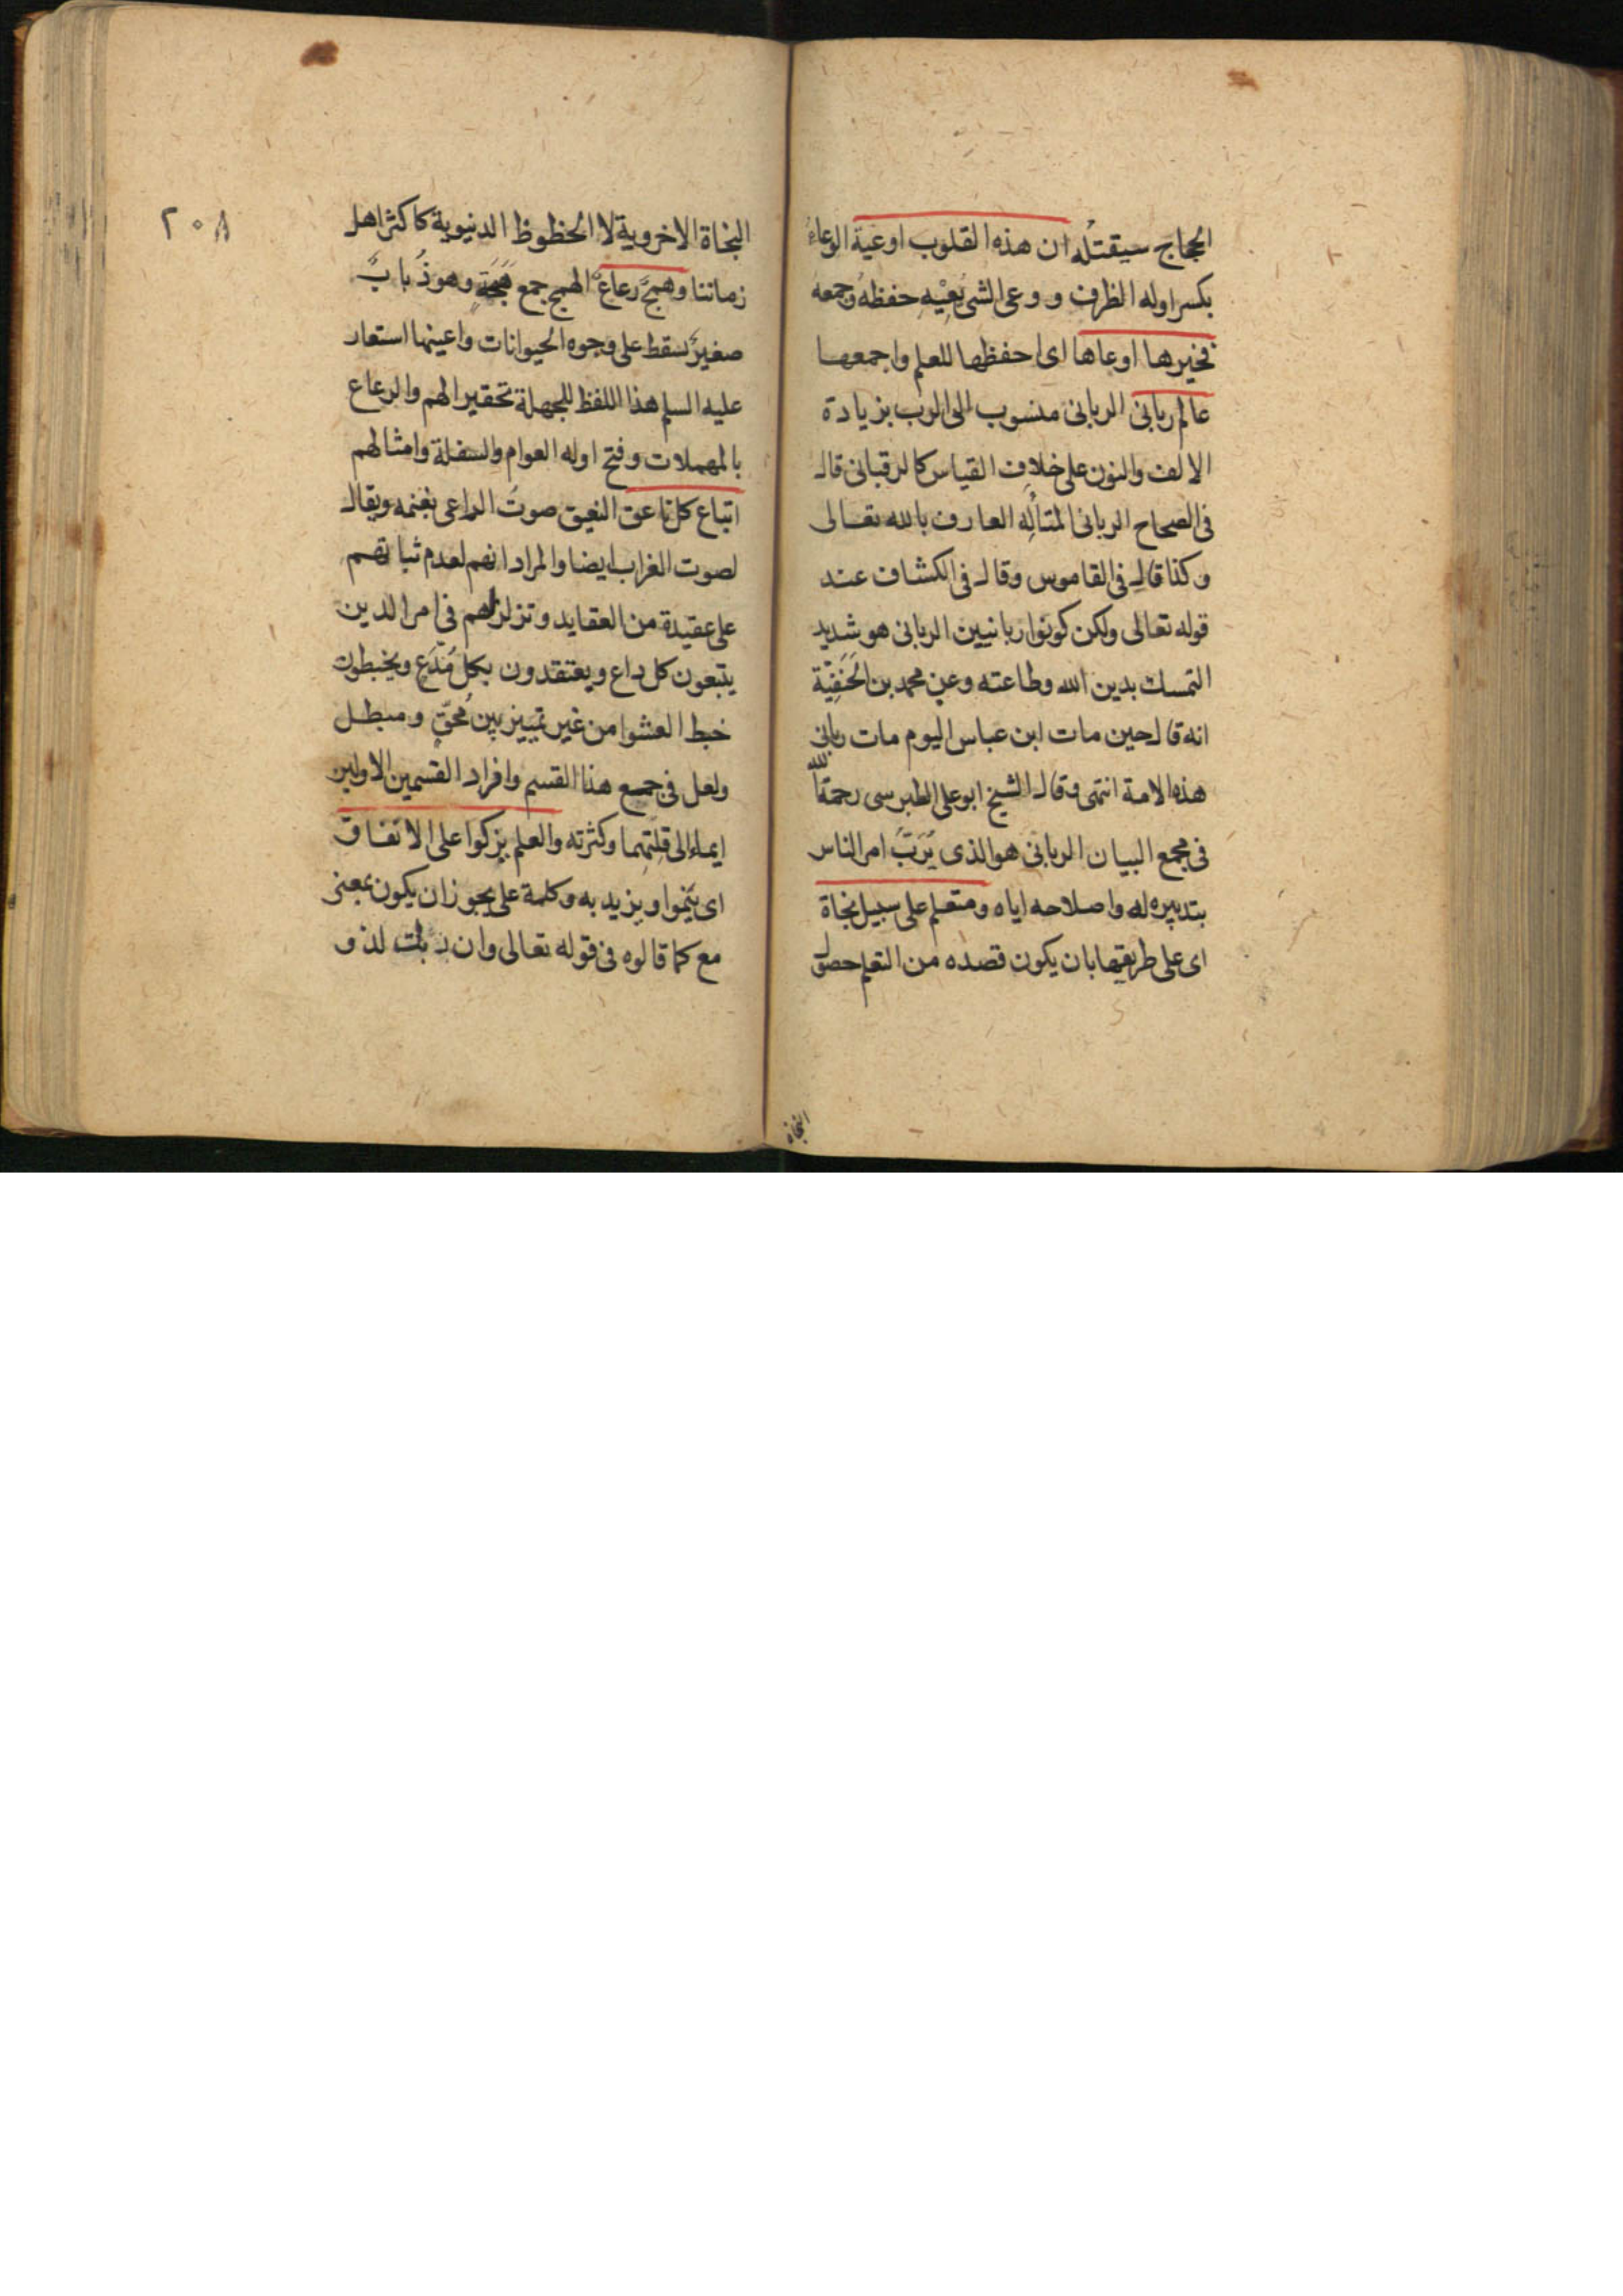 الحجاج سيقتله ان هذه القلوب اوعية الوعاء
بكسر اوله الظرف و وعى الشى يَعِيْهِ حفظه وجمعه
فخيرها اوعاها اى احفظها للعلم واجمعها
عالم ربانى الربانى منسوب الى الرب بزيادة
الالف والنون على خلاف القياس كالرقبانى قال
فى الصحاح الربانى المتأله العارف بالله تعالى
وكذا قال فى القاموس وقال فى الكشاف عند
قوله تعالى ولكن كونوا ربانيين الربانى هو شديد
التمسك بدين الله وطاعته وعن محمد بن الحَنَفِيّة
انه قال حين مات ابن عباس اليوم مات ربانى
هذه الامة انتهى وقال الشيخ ابو على الطبرسى رحمة الله
فى مجمع البيان الربانى هو الذى يَرَبّ امر الناس
بتدبيره له واصلاحه اياه ومتعلم على سبيل نجاة
اى على طريقها بان يكون قصده من التعلم حصول
النجاة
٢٠٨
النجاة الاخروية لا الحظوظ الدنيوية كاكثر اهل
زماننا وهمجٌ رعاعٌ الهمج جمع هَمَجَةٍ وهو ذُبابٌ
صغيرٌ يسقط على وجوه الحيوانات واعينها استعار
عليه السلم هذا اللفظ للجهلة تحقيرا لهم والرعاع
بالمهملات وفتح اوله العوام والسفلة وامثالهم
اتباع كل ناعق النعيق صوت الراعى بغنمه ويقال
لصوت الغراب ايضا والمراد انهم لعدم ثباتهم
على عقيدة من العقايد وتزلزلهم فى امر الدين
يتبعون كل داع ويعتقدون بكل مُدّع ويخبطون
خبط العشوا من غير تمييز بين مُحقّ ومبطل
ولعل فى جمع هذا القسم وافراد القسمين الاولين
ايماء الى قلتهما وكثرته والعلم يزكوا على الانفاق
اى ينموا ويزيد به وكلمة على يجوز ان يكون بمعنى
مع كما قالوه فى قوله تعالى وان ربك لذو